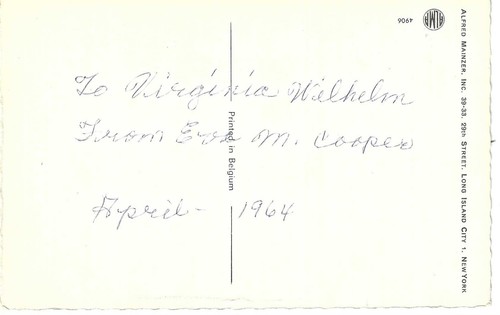 To Virginia Wilhelm
From Eva M. Cooper
April - 1964
Printed in Belgium
4906
ALFRED MAINZER, INC. 39-33, 29th STREET, LONG ISLAND CITY 1, NEW YORK